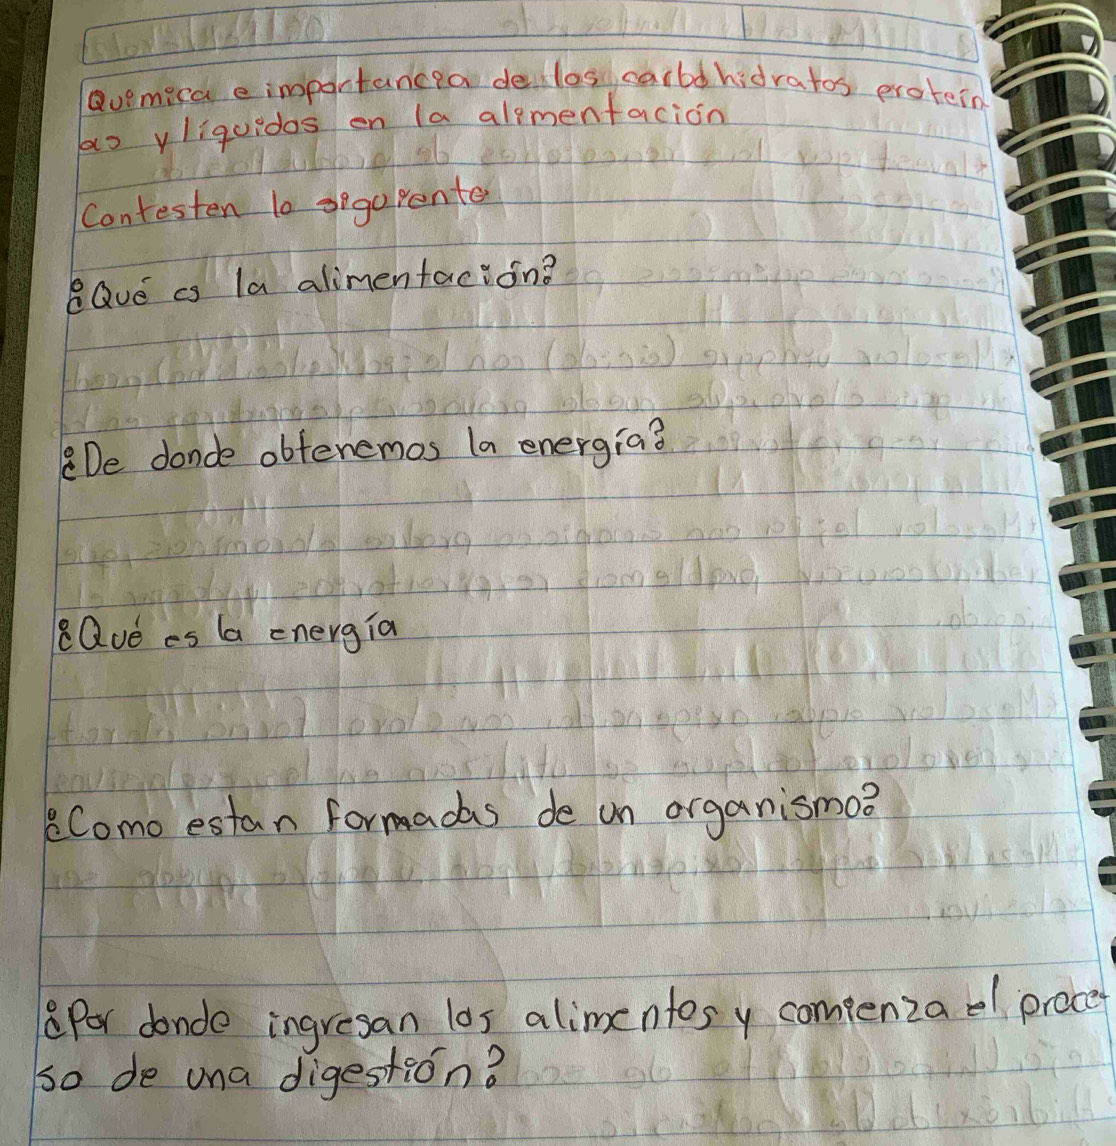 Química e importancia de los carbohidratos protein
as y líquidos en la alimentación
Contesten lo siguiente
¿Qué es la alimentación?
¿De donde obtenemos la energía?
¿Qué es la energía
¿Como estan formadas de un organismo?
¿Por donde ingresan los alimentos y comienza el proce
so de una digestión?